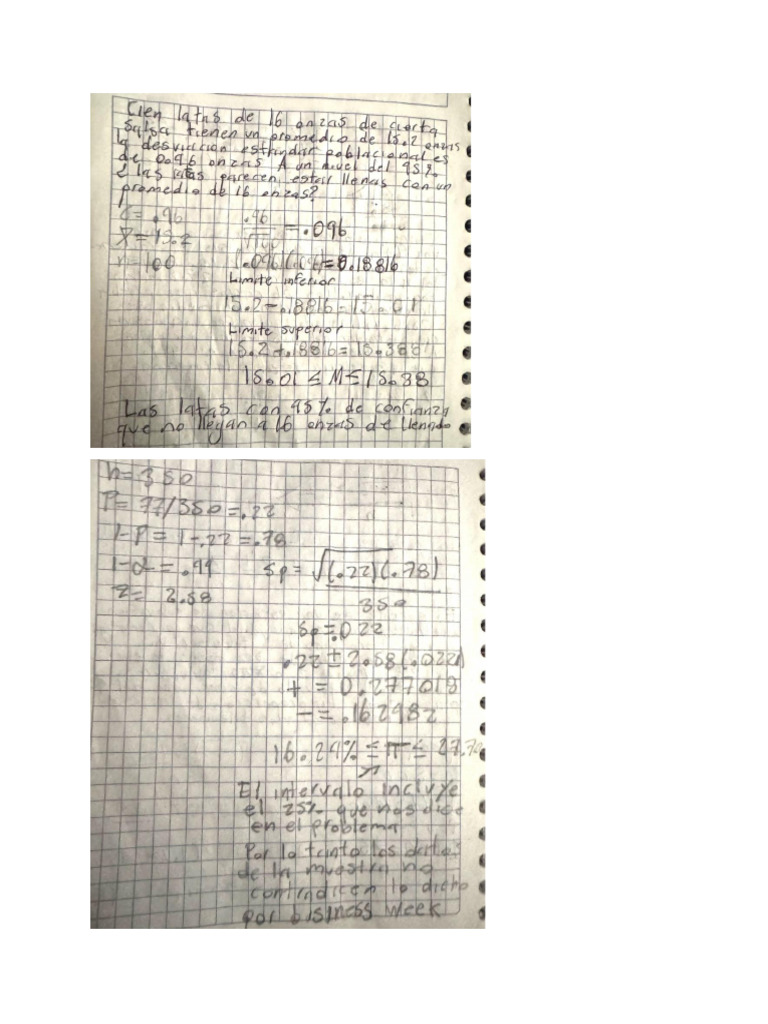 Cien latas de 16 onzas de cierta
salsa tienen un promedio de 15.2 onzas
la desviacion estandar poblacional es
de 0.96 onzas A un nivel del 95%
¿ las latas parecen estar llenas con un
promedio de 16 onzas?
σ = .96
.96
√100
= .096
x̄ = 15.2
n = 100
= 0.18816
Limite inferior
15.2 - .18816 = 15.01
Limite superior
15.2 + .18816 = 15.388
15.01 ≤ M ≤ 15.38
Las latas con 95% de confianza
que no llegan a 16 onzas de llenado
n = 350
P = 77/350 = .22
1-P = 1-.22 = .78
1-α = .99
Sp = √(.22)(.78)
350
z = 2.58
Sp = .022
.22 ± 2.58(.022)
+ = 0.277018
- = .162982
16.29% ≤ π ≤ 27.70
El intervalo incluye
el 25% que nos dice
en el problema
Por lo tanto los datos
de la muestra no
contradicen lo dicho
por business week